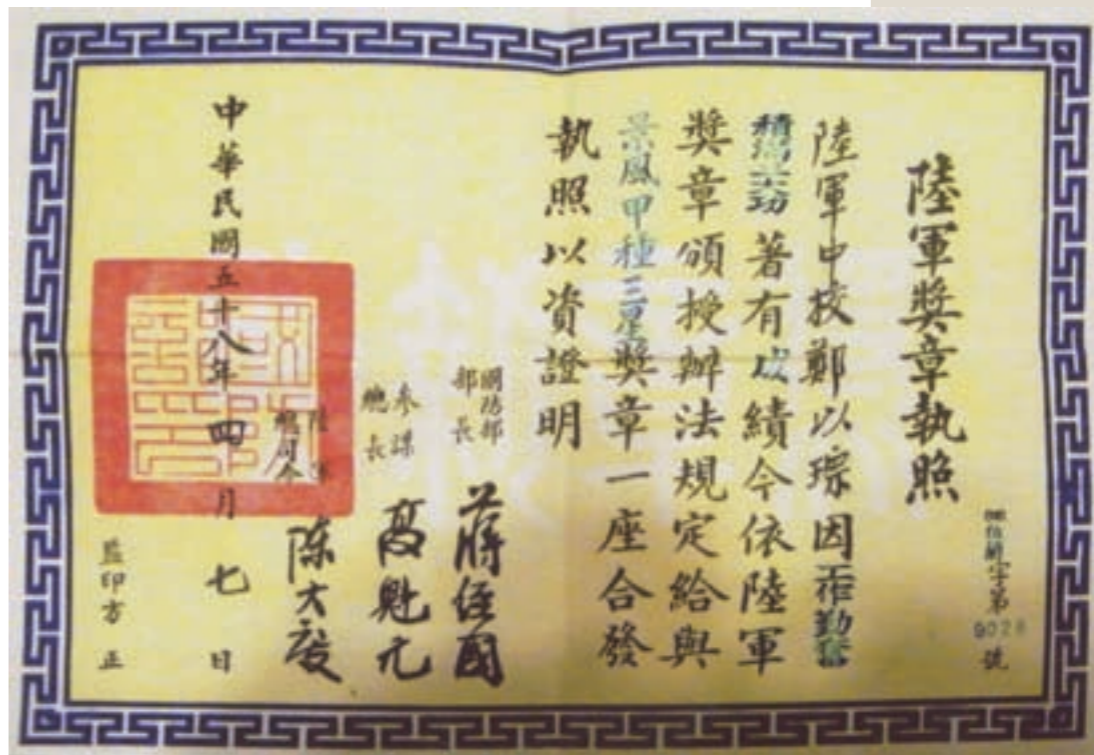 陸軍獎章執照
字第9028號
陸軍中校鄭以琮因工作勤奮
積功著有成績今依陸軍
獎章頒授辦法規定給與
景風甲種三星獎章一座合發
執照以資證明
國防部部長 蔣經國
參謀總長 高魁元
陸軍總司令 陳大慶
中華民國五十八年四月七日
監印方正